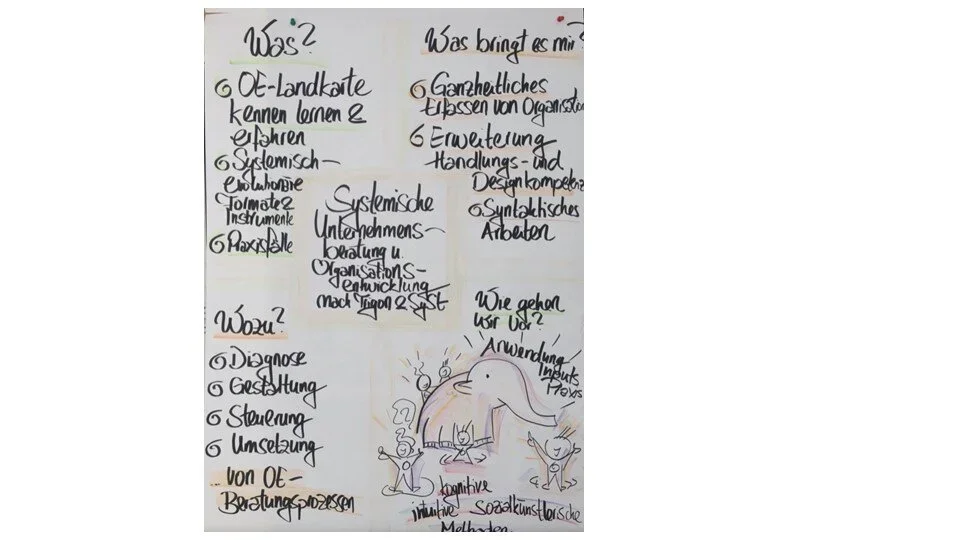 Was?
OE-Landkarte
kennen lernen &
erfahren
Systemisch-
evolutionäre
Formate &
Instrumente
Praxisfälle
Was bringt es mir?
Ganzheitliches
Erfassen von Organisation
Erweiterung
Handlungs- und
Designkompetenz
Syntaktisches
Arbeiten
Systemische
Unternehmens-
beratung u.
Organisations-
entwicklung
nach Trigon & SySt
Wozu?
Diagnose
Gestaltung
Steuerung
Umsetzung
... von OE-
Beratungsprozessen
Wie gehen
wir vor?
Anwendung
Inputs
Praxis
kognitive
intuitive sozialkünstlerische
Methoden